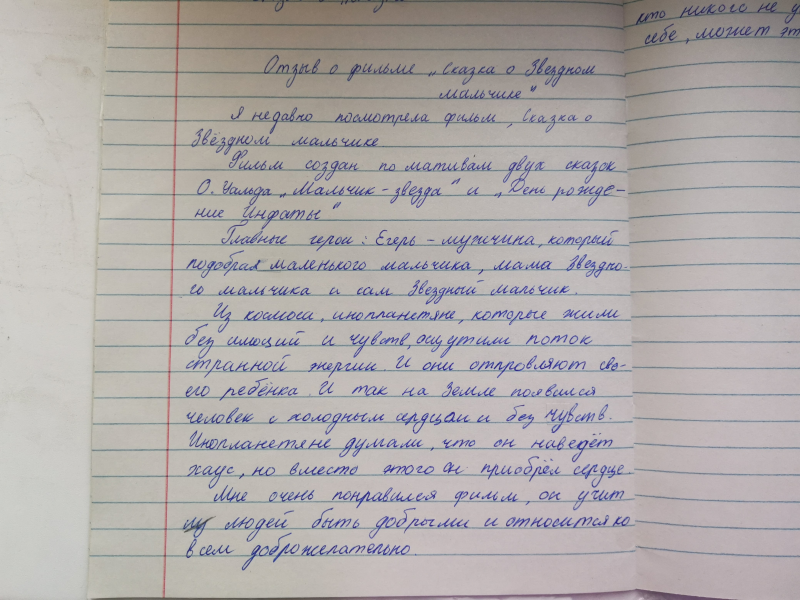 кто никого не
себе, может эт
Отзыв о фильме „Сказка о Звездном
мальчике“
Я недавно посмотрела фильм „Сказка о
Звёздном мальчике
Фильм создан по мативам двух сказок
О. Уальда „Мальчик-звезда“ и „День рожде-
ние Инфаты“
Главные герои: Егерь - мужчина, который
подобрал маленького мальчика, мама Звездно-
го мальчика и сам Звездный мальчик.
Из космоса, инопланетяне, которые жили
без имоций и чувств, ощутили поток
странной энергии. И они отпровляют сво-
его ребёнка. И так на Земле появился
человек с холодным сердцем и без чувств.
Инопланетяне думали, что он наведёт
хаус, но вместо этого он приобрёл сердце
Мне очень понравился фильм, он учит
людей быть добрыми и относится ко
всем доброжелательно.